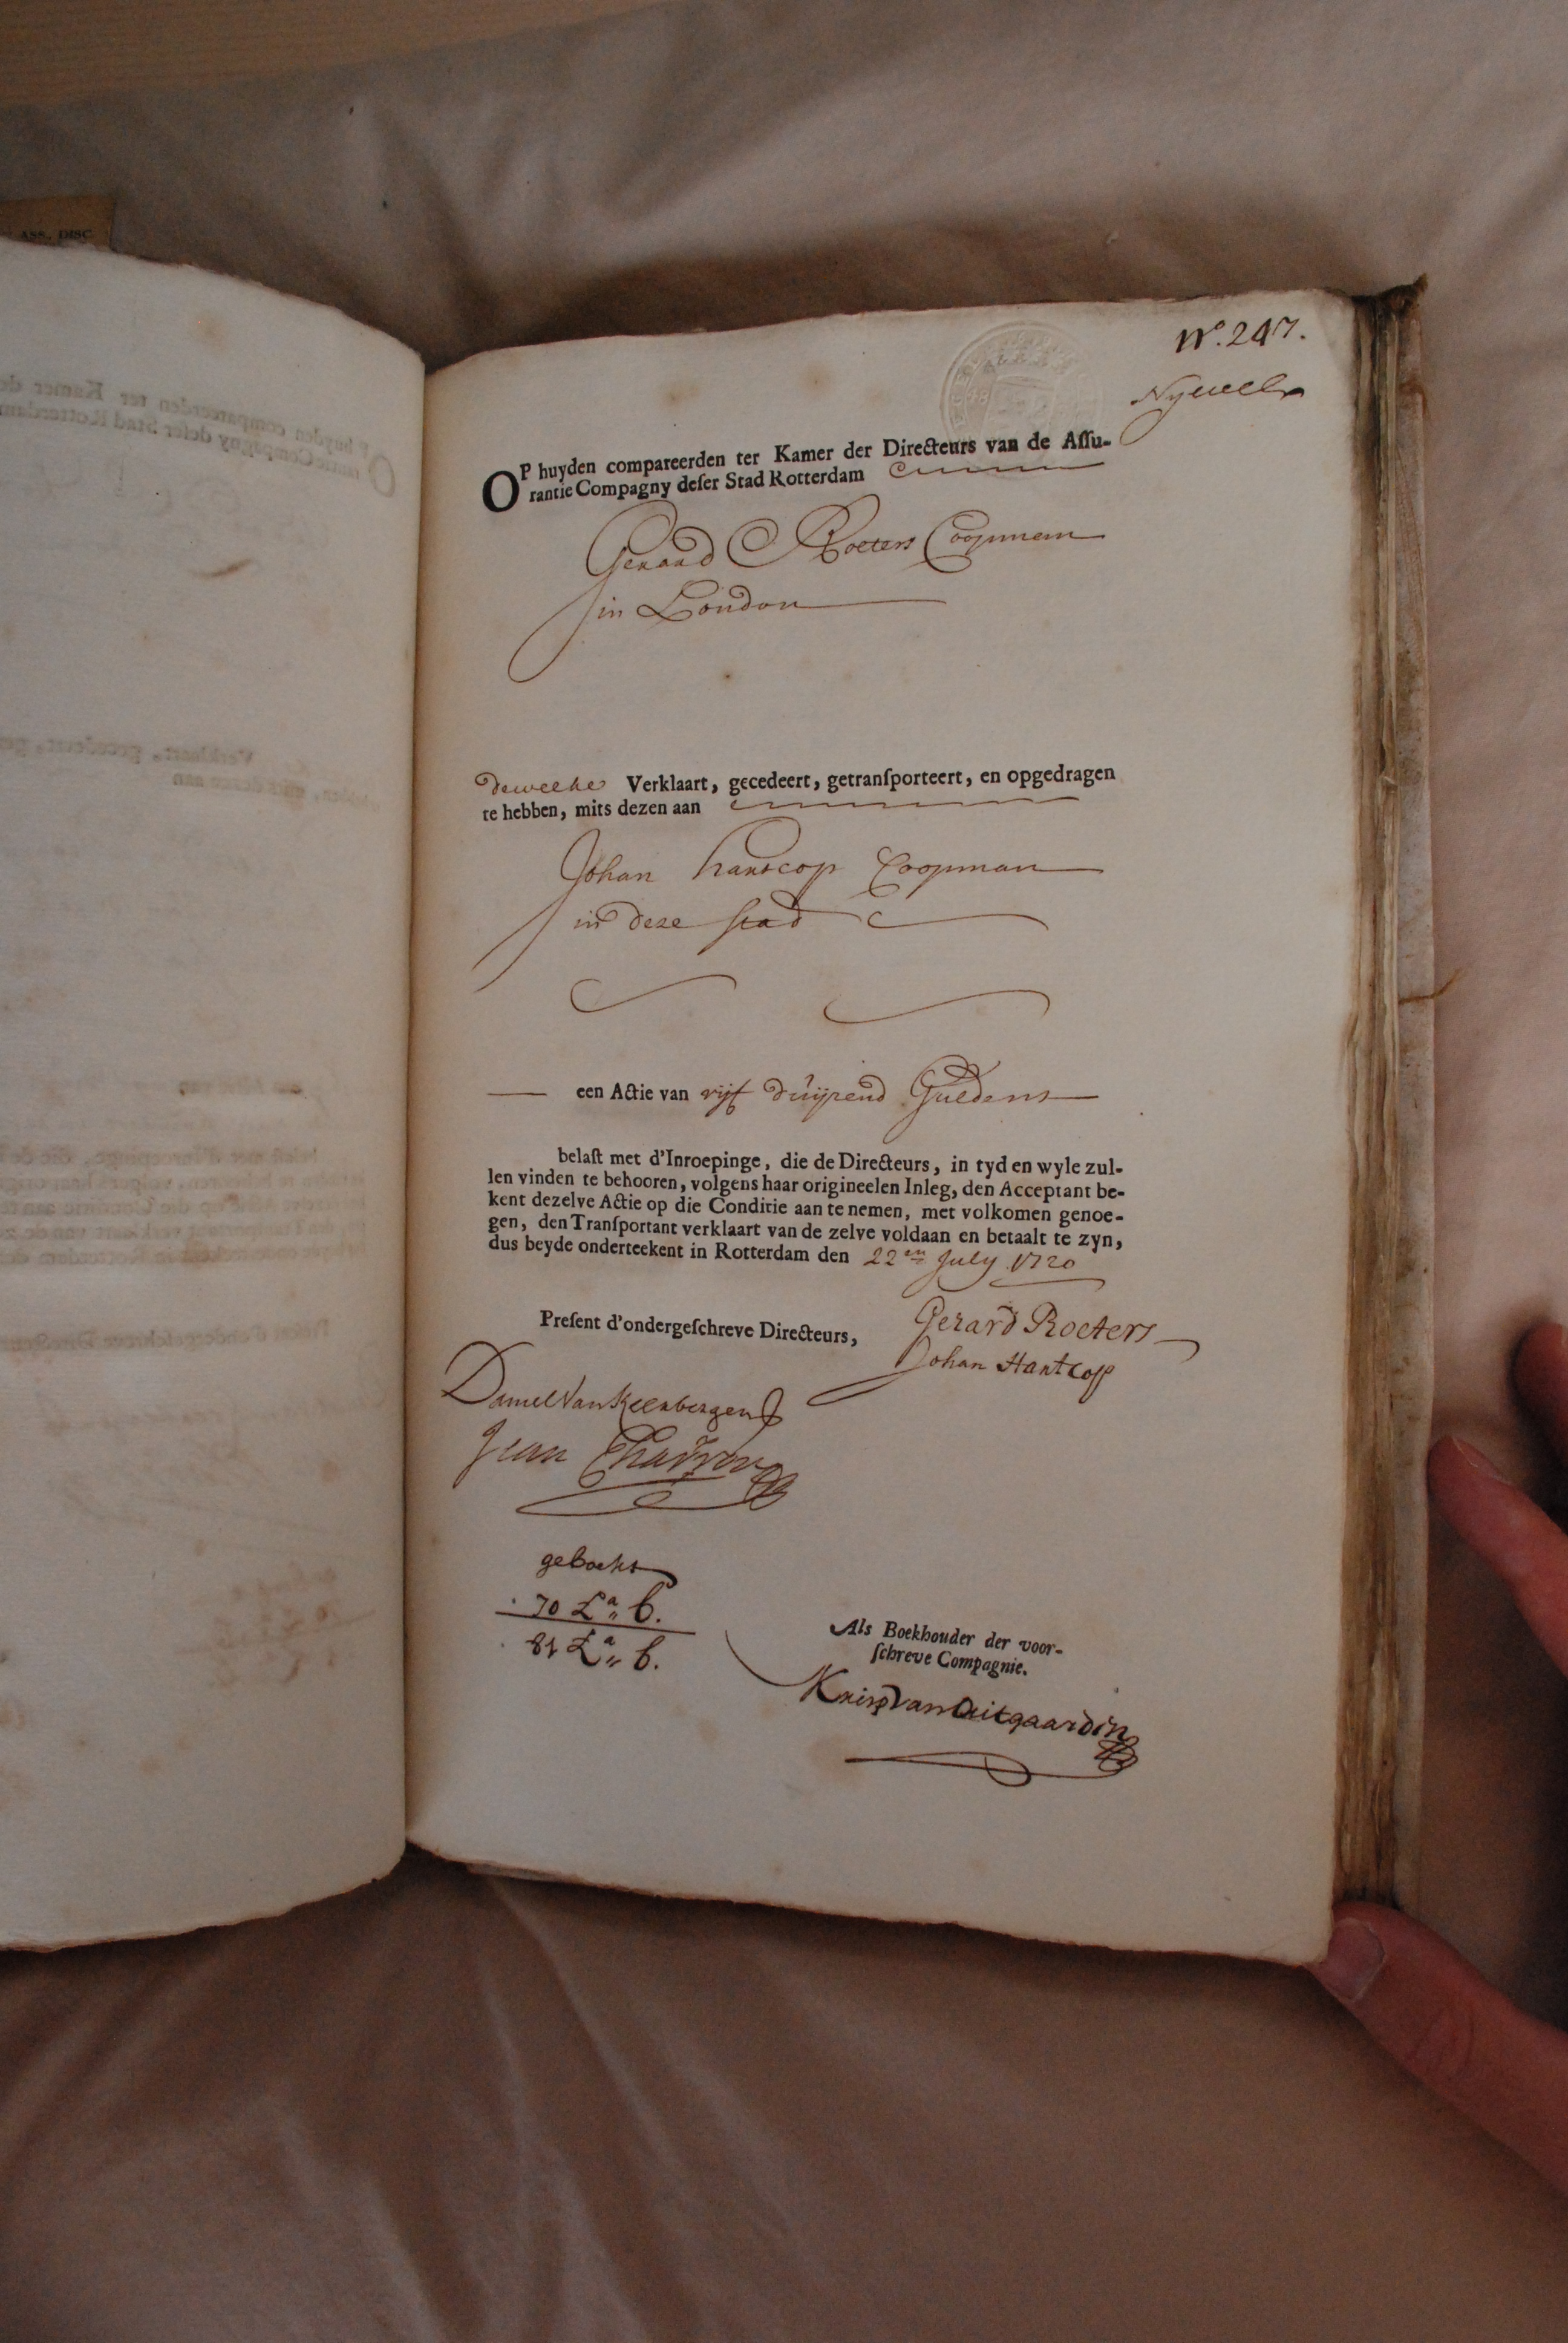 ASS. DISC
No. 247.
OP huyden compareerden ter Kamer der Directeurs van de Assu-
rantie Compagny deser Stad Rotterdam
Gerard Roeters Coopman
in London
dewelke Verklaart, gecedeert, getransporteert, en opgedragen
te hebben, mits dezen aan
Johan hantcop Coopman
in deze stad
een Actie van vyf duyzend Guldens
belast met d'Inroepinge, die de Directeurs, in tyd en wyle zul-
len vinden te behooren, volgens haar origineelen Inleg, den Acceptant be-
kent dezelve Actie op die Conditie aan te nemen, met volkomen genoe-
gen, den Transportant verklaart van de zelve voldaan en betaalt te zyn,
dus beyde onderteekent in Rotterdam den 22en July 1720
Present d'ondergeschreve Directeurs,
Gerard Roeters
Johan Hantcop
Daniel Van Keerbergen
Jean Chadron
geboekt
70 La b.
81 La b.
Als Boekhouder der voor-
schreve Compagnie.